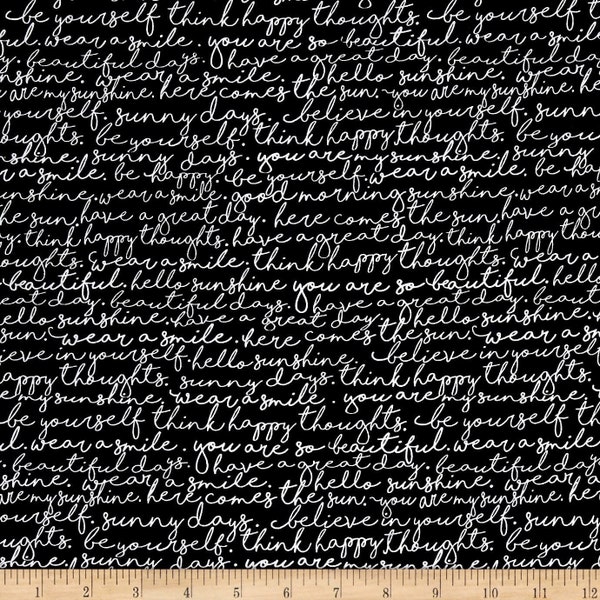 be yourself think happy thoughts. be yourself th
ful. wear a smile. you are so beautiful. wear a smile
y. beautiful days. have a great day. beautiful day
nshine. wear a smile. hello sunshine. wear a
are my sunshine. here comes the sun. you are my sunshine. here
yourself. sunny days. believe in yourself. sunny
oughts. be yourself. think happy thoughts. be you
nshine. sunny days. you are my sunshine. sunny
r a smile. be happy. be yourself. wear a smile. be ha
sunshine. wear a smile. good morning sunshine. wear a sm
the sun. have a great day. here comes the sun. have a g
y. think happy thoughts. have a great day. think happy thou
oughts. wear a smile. think happy thoughts. wear a s
beautiful. hello sunshine you are so beautiful. hello
eat day. beautiful days. have a great day. beautifu
ello sunshine. have a great day. hello sunshine. have
sun. wear a smile. here comes the sun. wear a sm
elieve in yourself. hello sunshine. believe in yourself. h
appy thoughts. sunny days. think happy thoughts.
e my sunshine. wear a smile. you are my sunshine. wea
be yourself think happy thoughts. be yourself th
ul. wear a smile. you are so beautiful. wear a smile
y. beautiful days. have a great day. beautiful day
nshine. wear a smile. hello sunshine. wear a
are my sunshine. here comes the sun. you are my sunshine. here
ourself. sunny days. believe in yourself. sunny
oughts. be yourself. think happy thoughts. be you
nshine. sunny days. you are my sunshine. sunny
1 2 3 4 5 6 7 8 9 10 11 12